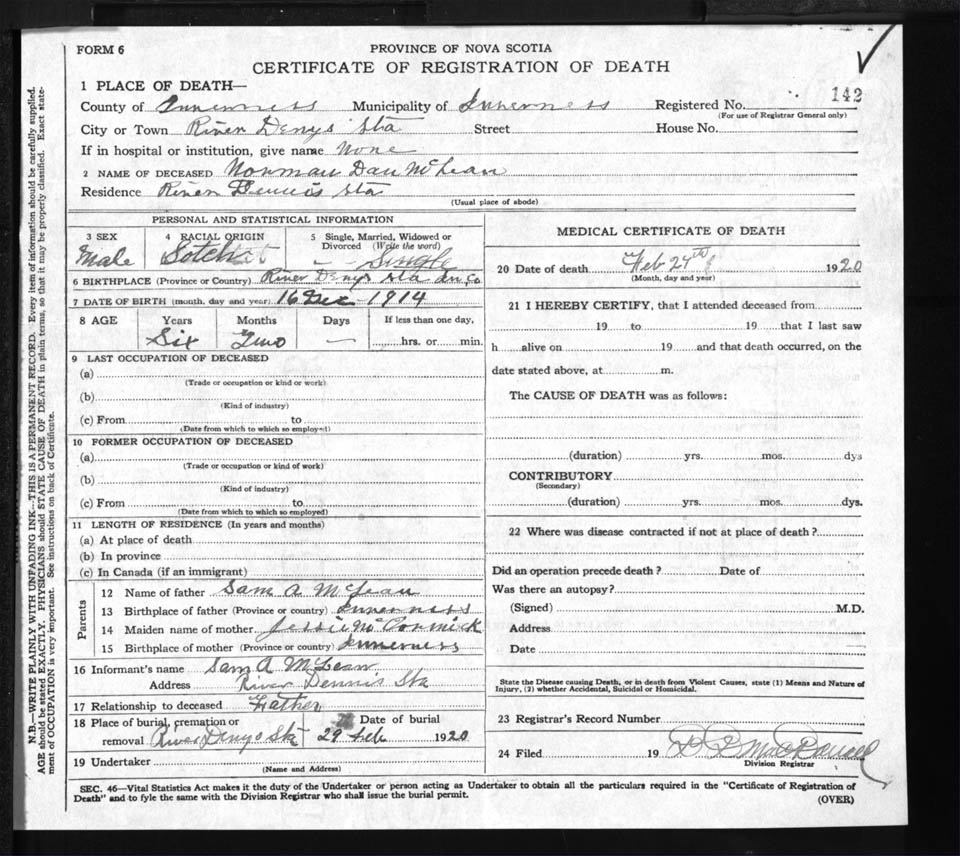 FORM 6
PROVINCE OF NOVA SCOTIA
CERTIFICATE OF REGISTRATION OF DEATH
N.B.—WRITE PLAINLY WITH UNFADING INK—THIS IS A PERMANENT RECORD. Every item of information should be carefully supplied.
AGE should be stated EXACTLY. PHYSICIANS should STATE CAUSE OF DEATH in plain terms, so that it may be properly classified. Exact state-
ment of OCCUPATION is very important. See instructions on back of Certificate.
1 PLACE OF DEATH—
142
County of Inverness Municipality of Inverness Registered No.
(For use of Registrar General only)
City or Town River Denys Sta Street House No.
If in hospital or institution, give name None
2 NAME OF DECEASED Norman Dan McLean
Residence River Dennis Sta
(Usual place of abode)
PERSONAL AND STATISTICAL INFORMATION
3 SEX 4 RACIAL ORIGIN 5 Single, Married, Widowed or
Divorced (Write the word)
Male Sotch Single
6 BIRTHPLACE (Province or Country) River Denys Sta In, Co
7 DATE OF BIRTH (month, day and year) 16 Dec 1914
8 AGE Years Months Days If less than one day,
Six Two — hrs. or min.
9 LAST OCCUPATION OF DECEASED
(a)
(Trade or occupation or kind or work)
(b)
(Kind of industry)
(c) From to
(Date from which to which so employed)
10 FORMER OCCUPATION OF DECEASED
(a)
(Trade or occupation or kind of work)
(b)
(Kind of industry)
(c) From to
(Date from which to which so employed)
11 LENGTH OF RESIDENCE (In years and months)
(a) At place of death
(b) In province
(c) In Canada (if an immigrant)
Parents
12 Name of father Sam A McLean
13 Birthplace of father (Province or country) Inverness
14 Maiden name of mother Jessie McCormick
15 Birthplace of mother (Province or country) Inverness
16 Informant's name Sam A McLean
Address River Dennis Sta
17 Relationship to deceased Father
18 Place of burial, cremation or Date of burial
removal River Denys Sta 29 Feb 1920
19 Undertaker
(Name and Address)
MEDICAL CERTIFICATE OF DEATH
20 Date of death Feb 27th 1920
(Month, day and year)
21 I HEREBY CERTIFY, that I attended deceased from
19 to 19 that I last saw
h alive on 19 and that death occurred, on the
date stated above, at m.
The CAUSE OF DEATH was as follows:
(duration) yrs. mos. dys
CONTRIBUTORY
(Secondary)
(duration) yrs. mos. dys.
22 Where was disease contracted if not at place of death?
Did an operation precede death? Date of
Was there an autopsy?
(Signed) M.D.
Address
Date
State the Disease causing Death, or in death from Violent Causes, state (1) Means and Nature of
Injury, (2) whether Accidental, Suicidal or Homicidal.
23 Registrar's Record Number
24 Filed 19
Division Registrar
SEC. 46—Vital Statistics Act makes it the duty of the Undertaker or person acting as Undertaker to obtain all the particulars required in the "Certificate of Registration of
Death" and to fyle the same with the Division Registrar who shall issue the burial permit.
(OVER)